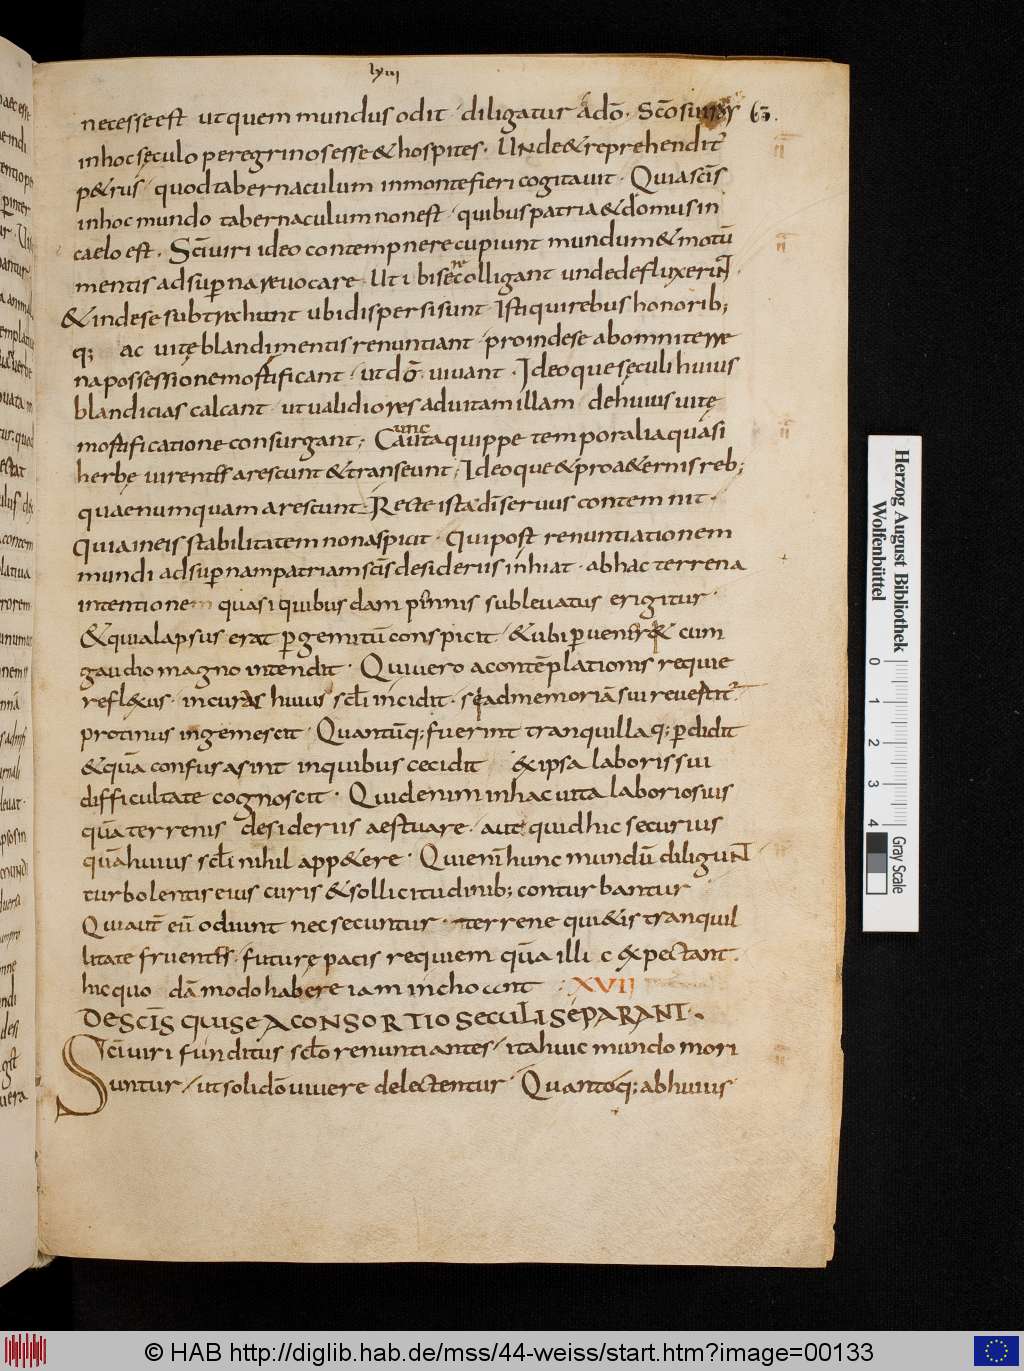 lxiii
necesse est ut quem mundus odit · diligatur a dō · Scōs uiros 63.
in hoc sęculo peregrinos esse & hospites · Unde & reprehenditʳ
p&rus · quod tabernaculum in monte fieri cogitauit · Quia scīs
in hoc mundo tabernaculum non est · quibus patria & domus in
caelo est · Scī uiri ideo contempnere cupiunt mundum & motū
mentis ad superna reuocare · Ut ibi se recolligant unde defluxerunt ·
& inde se subtrahunt ubi dispersi sunt · Isti qui rebus honorib;
q; ac uitę blandimentis renuntiant · proinde se ab omni terre
na possessione mortificant · ut dō uiuant · Ideoque sęculi huius
blandicias calcant · ut ualidiores ad uitam illam de huius uitę
mortificatione consurgant ; Cuncta quippe temporalia quasi
herbę uirentes arescunt & transeunt ; Ideoque & pro a&ernis reb;
quae numquam arescunt · Recte ista dī seruus contemnit ·
Quia in eis stabilitatem non aspicit · Qui post renuntiationem
mundi ad supernam patriam scīs desideriis inhiat · ab hac terrena
intentionem quasi quibusdam pinnis subleuatus erigitur ·
& qua lapsus erat p gemitū conspicit · & ubi puenir& cum
gaudio magno intendit · Qui uero a contēplationis requie
reflexus · in curas huius scłi incidit · si ad memoriā sui reuertitʳ
protinus ingemescit · Quantūq; fuerint tranquilla q; pdidit
& quā confusa sint in quibus cecidit & ipsa laboris sui
difficultate cognoscit · Quid enim in hac uita laboriosius
quā terrenis desideriis aestuare · aut quid hic securius
quā huius scłi nihil app&ere · Qui enī hunc mundū diligunt
turbolentis eius curis & sollicitudinib; conturbantur
Qui autē eū odiunt nec secuntur · terrene qui&is tranquil
litate fruentes · futurę pacis requiem quā illic expectant ·
hic quodā modo habere iam inchoant · XVII
De scīs qui se a consortio seculi separant ·
Scī uiri funditus scło renuntiantes · ita huic mundo mori
untur · ut soli dō uiuere delectentur · Quantoq; ab huius
Herzog August Bibliothek
Wolfenbüttel
0 1 2 3 4
Gray Scale
© HAB http://diglib.hab.de/mss/44-weiss/start.htm?image=00133